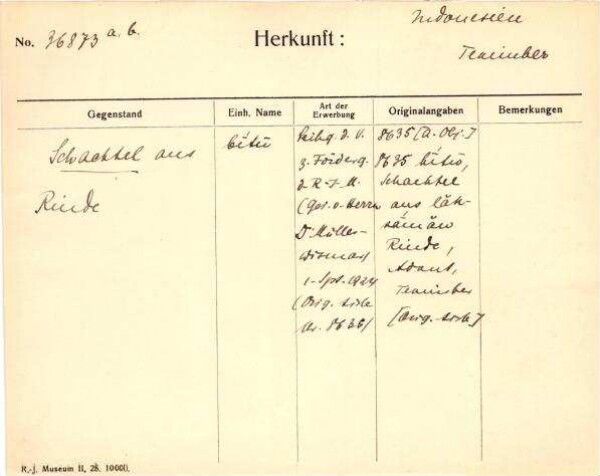 No. 36873 a. b.
Herkunft:
Indonesien
Tenimber
Gegenstand
Einh. Name
Art der Erwerbung
Originalangaben
Bemerkungen
Schachtel aus
Rinde
bĕtū
Leihg. d. V.
z. Förderg.
d. R-J-M.
(Ges. v. Herrn
Dr. Müller-
Wismar)
1. Spt. 1924
(Orig.
Nr. 8635)
8635 [A. Obj.]
8635
Schachtel
aus
Rinde,
Adaut,
Tenimber
[Orig.
R.-J. Museum II, 28. 10000.